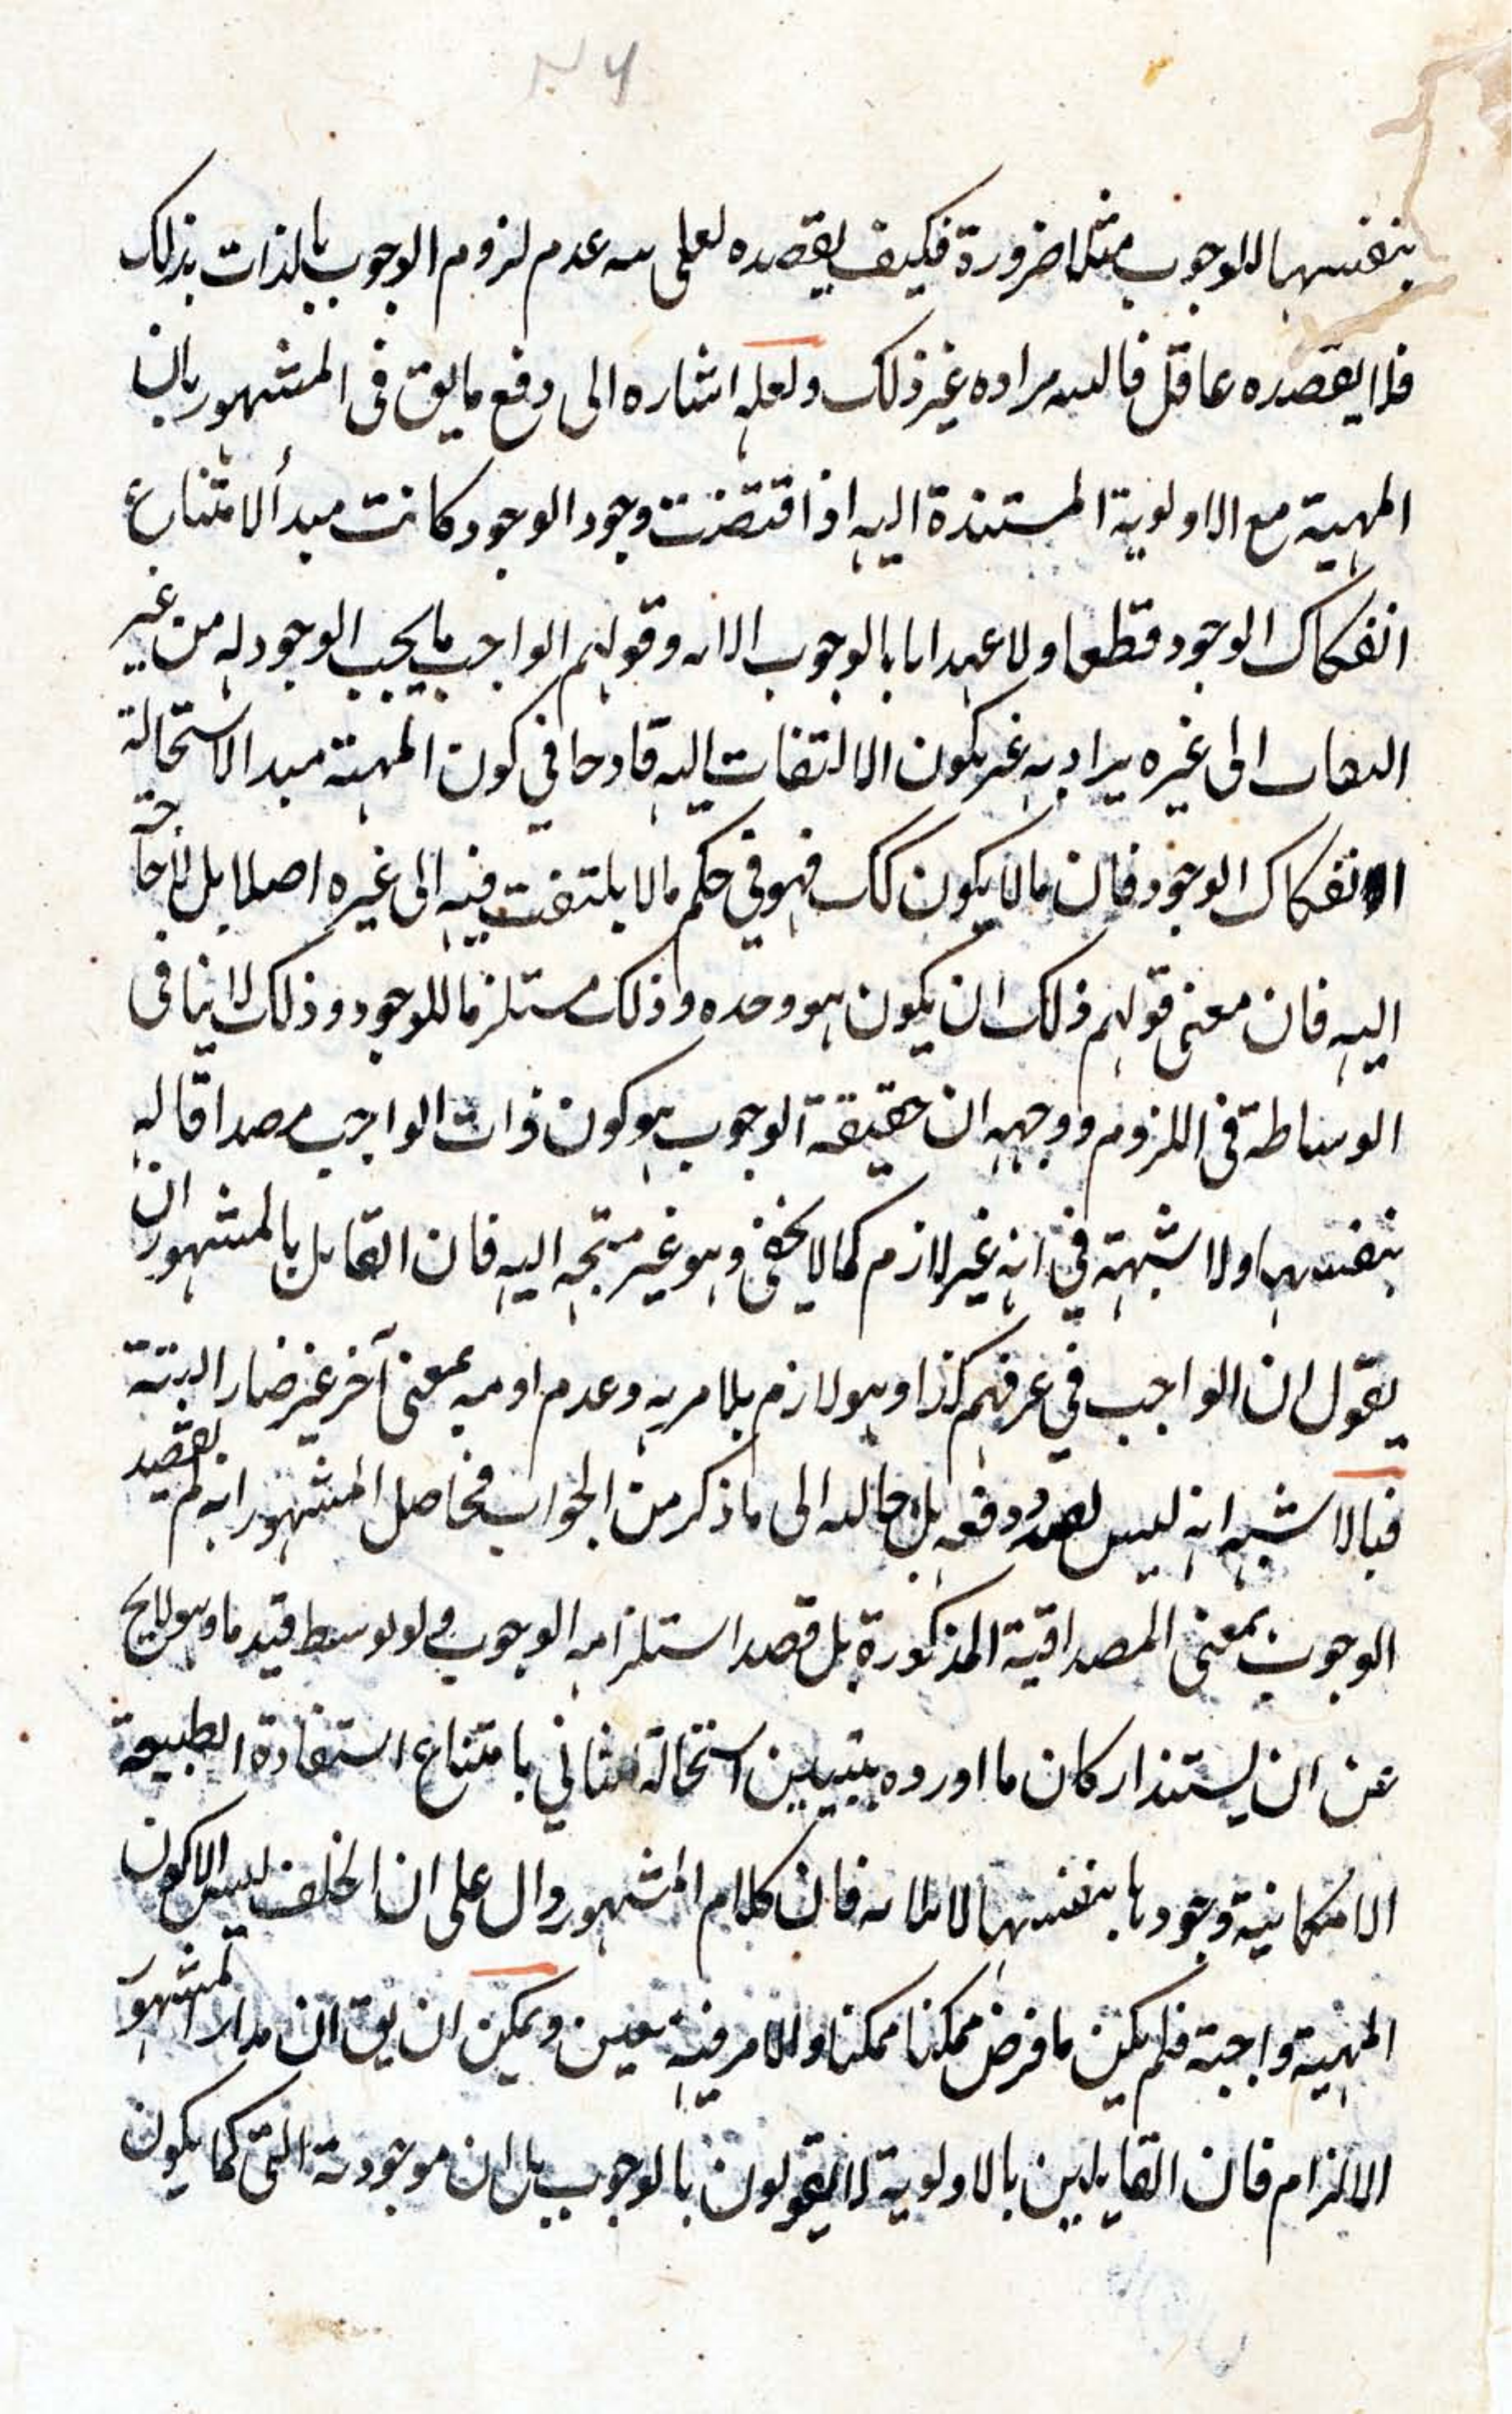 بنفسها للوجوب مثلا ضرورة فكيف يقصده لعلى عدم لزوم الوجوب بالذات بذلك
فلا يقصده عاقل مراده غير ذلك ولعله اشاره الى دفع مايق فى المشهور بان
المهية مع الاولوية المستندة اليه اذا اقتضت وجود الوجود كانت مبدأ لامتناع
انفكاك الوجود قطعا ولا بالوجوب وقولهم الواجب ما يجب الوجود له من غير
الى غيره يراد به غير يكون الالتفات اليه قادحا في كون المهية مبدا لاستحالة
انفكاك الوجود فان مالا يكون كك فهو في حكم مالا يلتفت فيه الى غيره اصلا بل لا حاجة
اليه فان معنى قولهم ذلك ان يكون هو وحده وذلك مستلزما للوجود وذلك لا ينافى
الوساطة فى اللزوم ووجهه ان حقيقة الوجوب هو كون ذات الواجب مصداقا له
بنفسها ولا شبهة في انه غير لازم كما لا يخفى وهو غير متجه اليه فان القايل بالمشهور ان
يقول ان الواجب في عرفهم كذا وهو لازم بلا مريه وعدم بمعنى آخر غير ضار البتة
فبالاشبه انه ليس دفعه بل الى ما ذكر من الجواب فحاصل المشهور انه لم يقصد
الوجوب بمعنى المصداقية المذكورة بل قصد استلزامه الوجوب ولو بوسط قيد ما وهو لايح
عن ان يستند اركان ما اورده بتبيين استحالة الثاني بامتناع استفادة الطبيعة
الامكانية وجودها بنفسها فان كلام المشهور دال على ان الخلف ليس الا كون
المهية واجبة فلم يكن ما فرض ممكنا ممكنا والامر فيه هين ويمكن ان يق ان مدار المشهور
الالزام فان القايلين بالاولوية لا يقولون بالوجوب بل ان موجودية الشى كما يكون